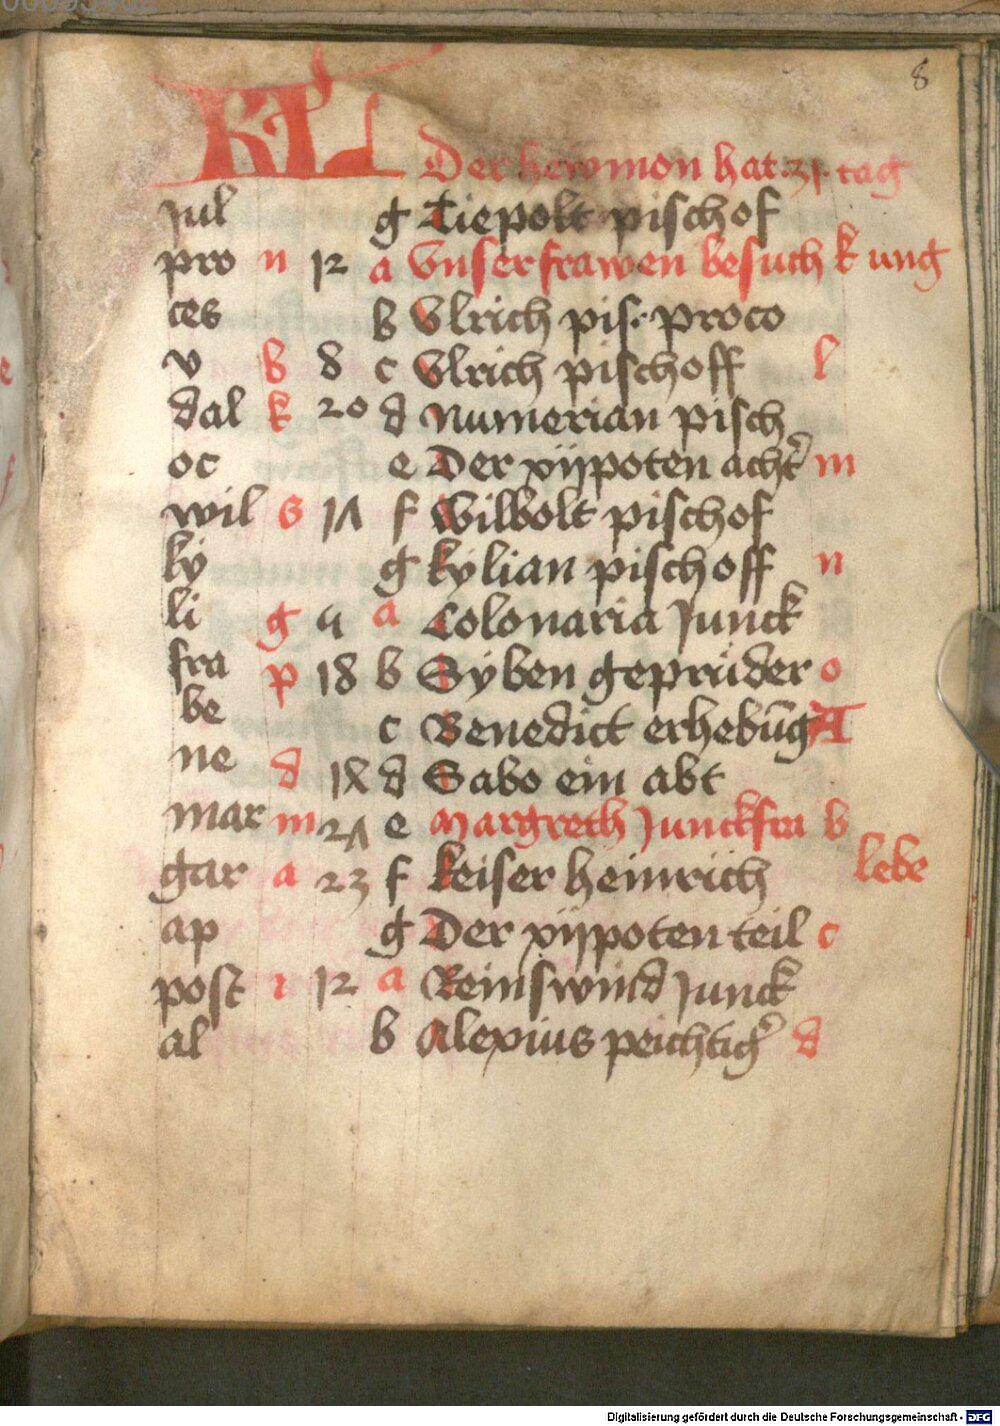 00095462
8
KL Der hewmon hat ·31· tag
Jul g Tiepolt pischof
pro n 12 a Vnser frawen besuch k ung
ces b Vlrich pis· proco
v b 8 c Vlrich pischoff l
dal k 20 d Numerian pisch
oc e Der xijpoten acht' m
wil s 17 f Wilbolt pischof
ky g kylian pischoff n
li g 4 a Colonaria Junck
fra p 18 b Syben geprüder o
be c Benedict erhebūg A
ne d 14 d Sabo ein abt
mar m 27 e Margreth Junckfra b
gar a 23 f keiser heinrich lebe
ap g Der xijpoten teil c
post i 12 a Reinswind Junck
al b Alexius peichtig' d
Digitalisierung gefördert durch die Deutsche Forschungsgemeinschaft - DFG